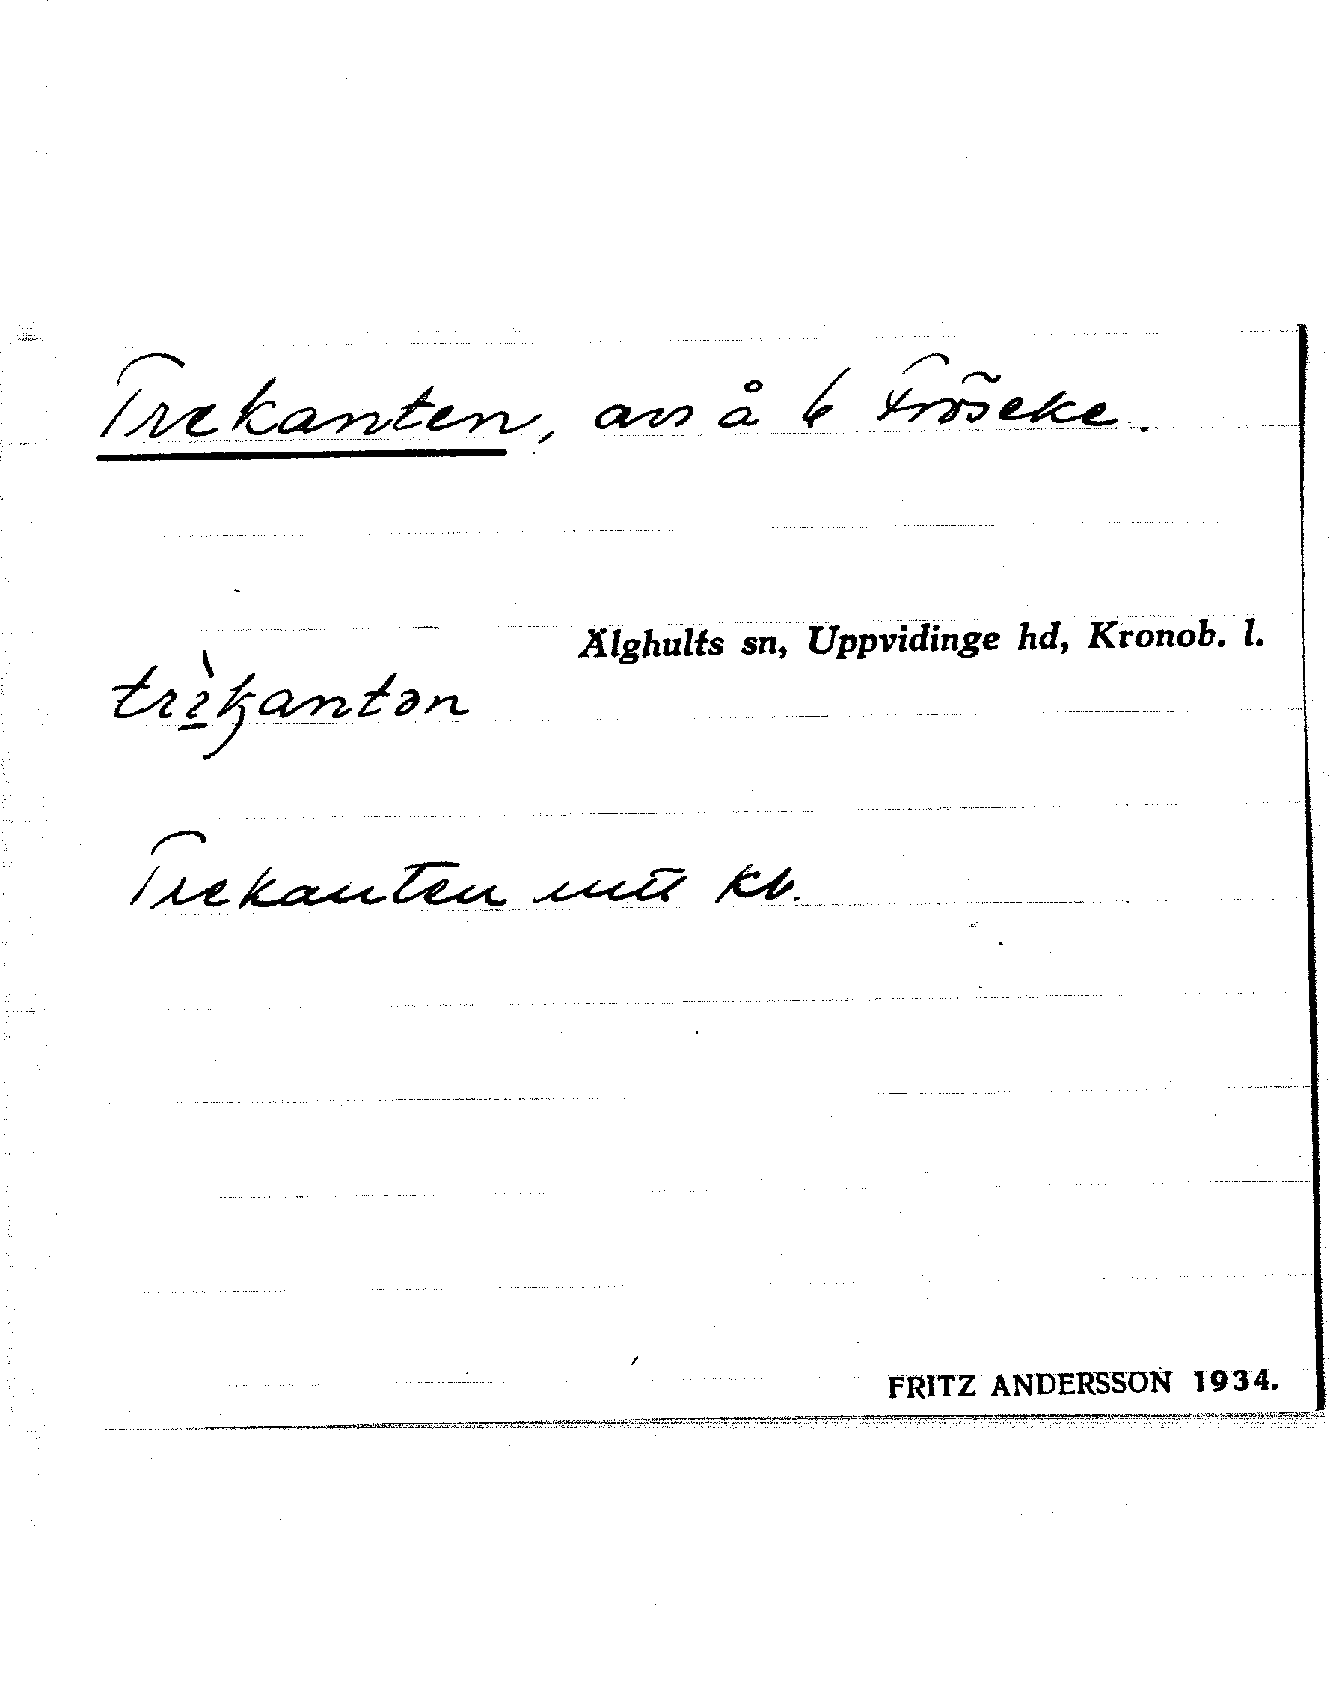 Trekanten, avs å 6 Fröseke.
Älghults sn, Uppvidinge hd, Kronob. l.
trèkantən
Trekanten kb.
FRITZ ANDERSSON 1934.